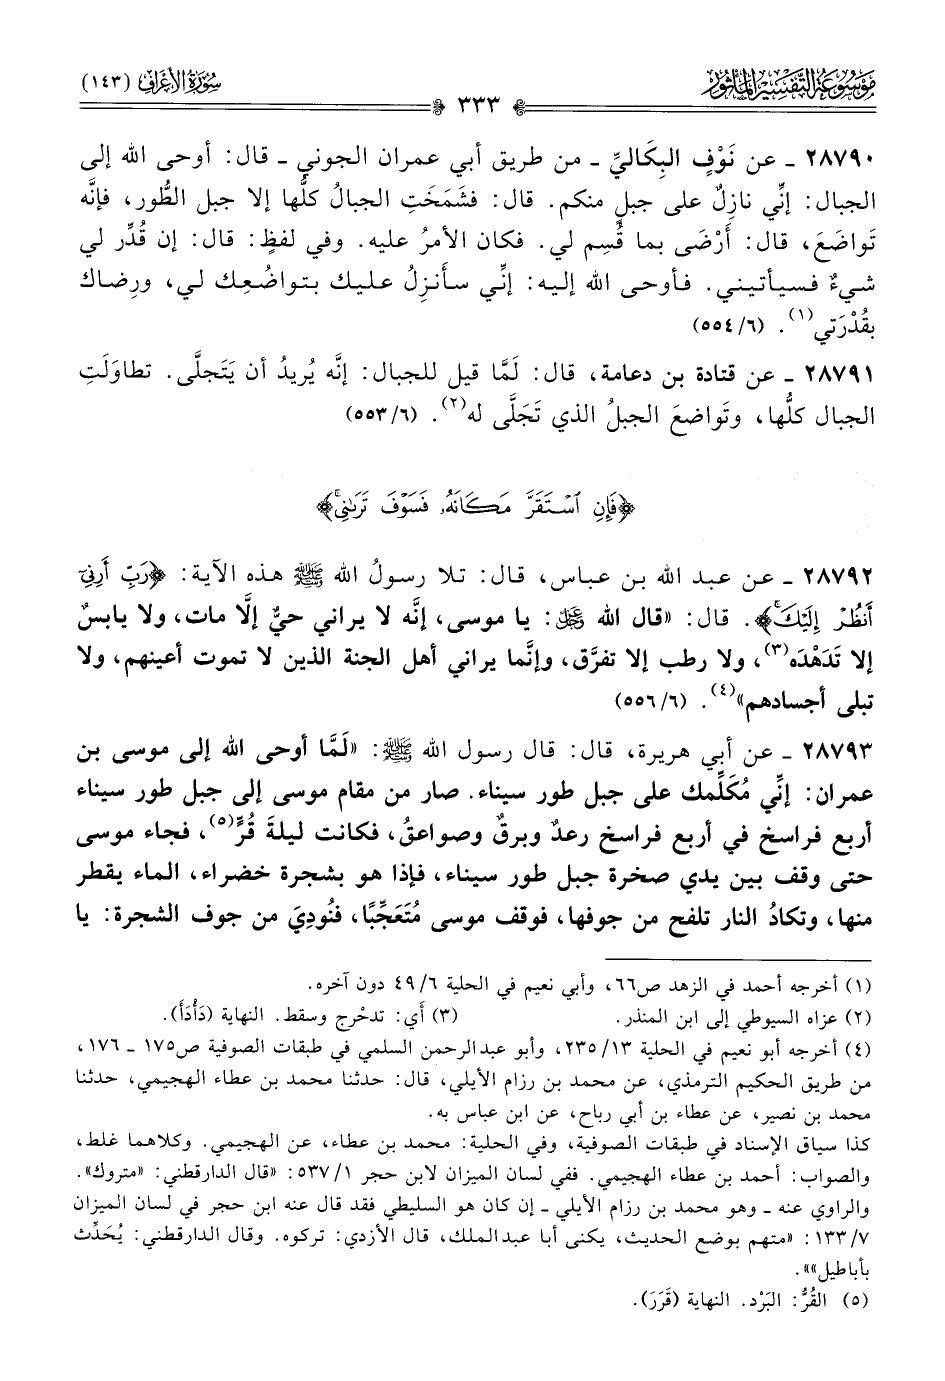 مَوْسُوعَة التَّفْسِير المَأْثُور
سُورَةُ الأَعْرَافِ (١٤٣)
٣٣٣
٢٨٧٩٠ ـ عن نَوْفٍ البِكَاليِّ ـ من طريق أبي عمران الجوني ـ قال: أوحى الله إلى
الجبال: إنِّي نازِلٌ على جبلٍ منكم. قال: فشَمَخَتِ الجبالُ كلُّها إلا جبل الطُّور، فإنَّه
تَواضَعَ، قال: أَرْضَى بما قُسِم لي. فكان الأمرُ عليه. وفي لفظٍ: قال: إن قُدِّر لي
شيءٌ فسيأتيني. فأوحى الله إليه: إنِّي سأَنزِلُ عليك بتواضُعِك لي، ورِضاك
بقُدْرَتي(١). (٦/ ٥٥٤)
٢٨٧٩١ ـ عن قتادة بن دعامة، قال: لَمَّا قيل للجبال: إنَّه يُريدُ أن يَتَجلَّى. تطاوَلَتِ
الجبال كلُّها، وتَواضعَ الجبلُ الذي تَجَلَّى له(٢). (٦/ ٥٥٣)
﴿فَإِنِ ٱسْتَقَرَّ مَكَانَهُۥ فَسَوْفَ تَرَىٰنِىۚ﴾
٢٨٧٩٢ ـ عن عبد الله بن عباس، قال: تلا رسولُ الله ﷺ هذه الآية: ﴿رَبِّ أَرِنِىٓ
أَنظُرْ إِلَيْكَۚ﴾. قال: «قال الله ﷿: يا موسى، إنَّه لا يراني حيٌّ إلَّا مات، ولا يابسٌ
إلا تَدَهْدَه(٣)، ولا رطب إلا تفرَّق، وإنَّما يراني أهل الجنة الذين لا تموت أعينهم، ولا
تبلى أجسادهم»(٤). (٦/ ٥٥٦)
٢٨٧٩٣ ـ عن أبي هريرة، قال: قال رسول الله ﷺ: «لَمَّا أوحى الله إلى موسى بن
عمران: إنِّي مُكَلِّمك على جبل طور سيناء. صار من مقام موسى إلى جبل طور سيناء
أربع فراسخ في أربع فراسخ رعدٌ وبرقٌ وصواعقُ، فكانت ليلةَ قُرٍّ(٥)، فجاء موسى
حتى وقف بين يدي صخرة جبل طور سيناء، فإذا هو بشجرة خضراء، الماء يقطر
منها، وتكادُ النار تلفح من جوفها، فوقف موسى مُتَعَجِّبًا، فنُودِيَ من جوف الشجرة: يا
(١) أخرجه أحمد في الزهد ص٦٦، وأبي نعيم في الحلية ٦/ ٤٩ دون آخره.
(٢) عزاه السيوطي إلى ابن المنذر. (٣) أي: تدحْرج وسقط. النهاية (دَأْدَأَ).
(٤) أخرجه أبو نعيم في الحلية ١٣/ ٢٣٥، وأبو عبدالرحمن السلمي في طبقات الصوفية ص١٧٥ ـ ١٧٦،
من طريق الحكيم الترمذي، عن محمد بن رزام الأيلي، قال: حدثنا محمد بن عطاء الهجيمي، حدثنا
محمد بن نصير، عن عطاء بن أبي رباح، عن ابن عباس به.
كذا سياق الإسناد في طبقات الصوفية، وفي الحلية: محمد بن عطاء، عن الهجيمي. وكلاهما غلط،
والصواب: أحمد بن عطاء الهجيمي. ففي لسان الميزان لابن حجر ١/ ٥٣٧: «قال الدارقطني: «متروك».
والراوي عنه ـ وهو محمد بن رزام الأيلي ـ إن كان هو السليطي فقد قال عنه ابن حجر في لسان الميزان
٧/ ١٣٣: «متهم بوضع الحديث، يكنى أبا عبدالملك، قال الأزدي: تركوه. وقال الدارقطني: يُحَدِّث
بأباطيل»».
(٥) القُرُّ: البَرْد. النهاية (قَرَرَ).